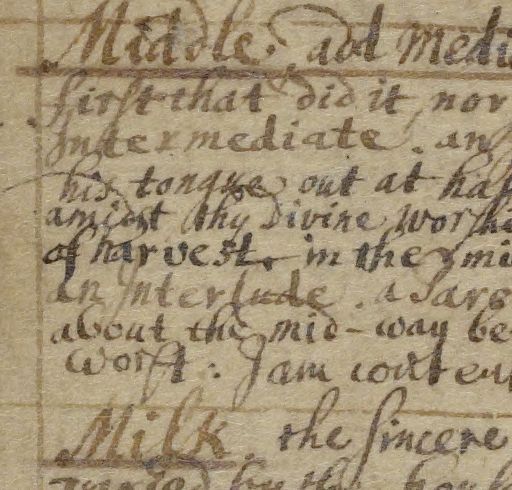 Middle. and Medi
first that did it, nor
Intermediate. an
his tongue out at hal
amidst thy divine worshi
of harvest. in the mi
an Interlude. a Jarg
about the mid-way be
worst: I am content
Milk. the sincere